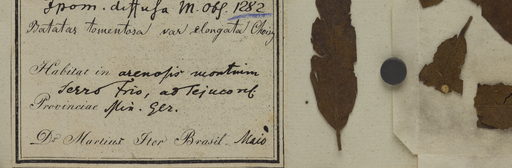 Ipom. diffusa M. Obs. 1282
Batatas tomentosa var elongata Choisy
Habitat in arenosis montium
Serro Frio, ad Tejuco rel
Provinciae Min. Ger.
Dr Martius Iter Brasil. Majo